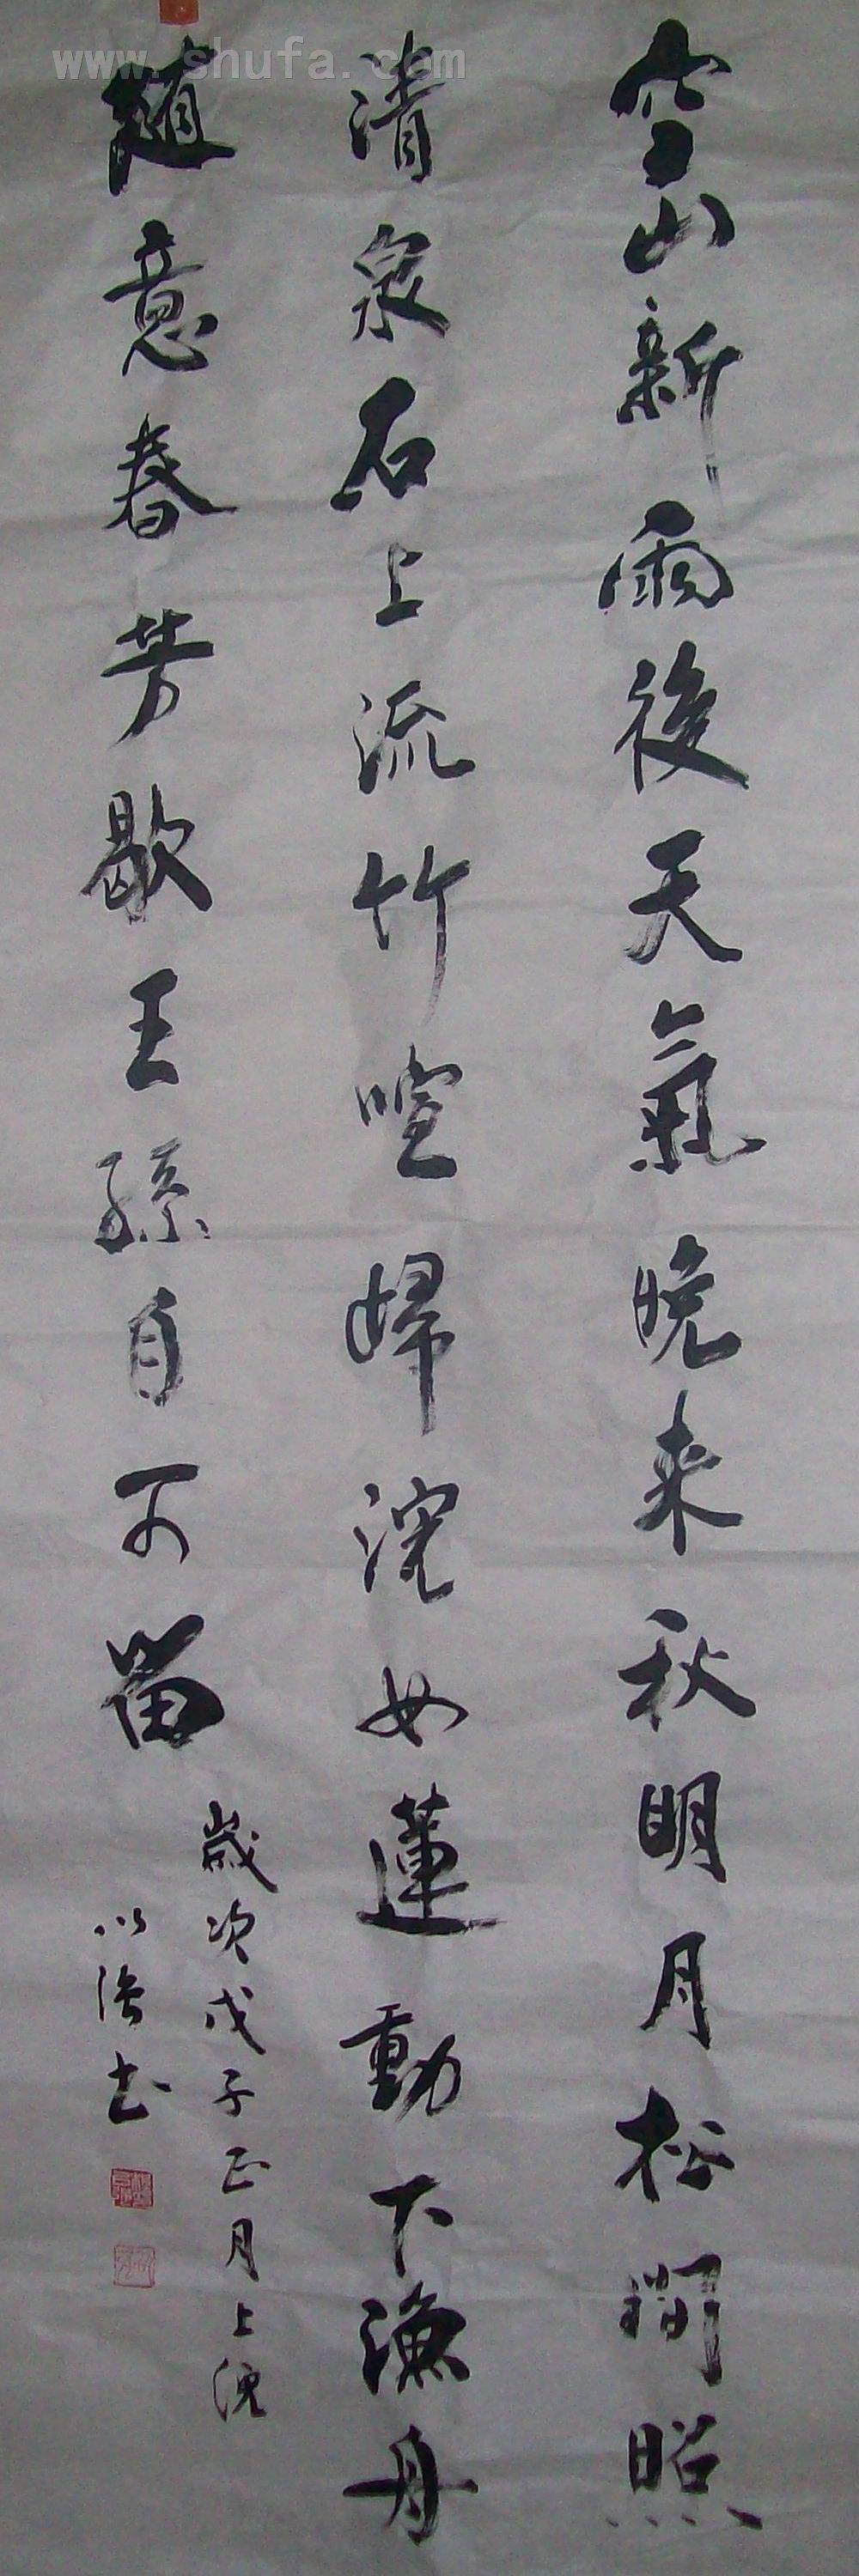 www.shufa.com
空山新雨後天氣晚来秋明月松間照
清泉石上流竹喧婦浣女蓮動下漁舟
随意春芳歇王孫自可留
歲次戊子正月上浣
以书